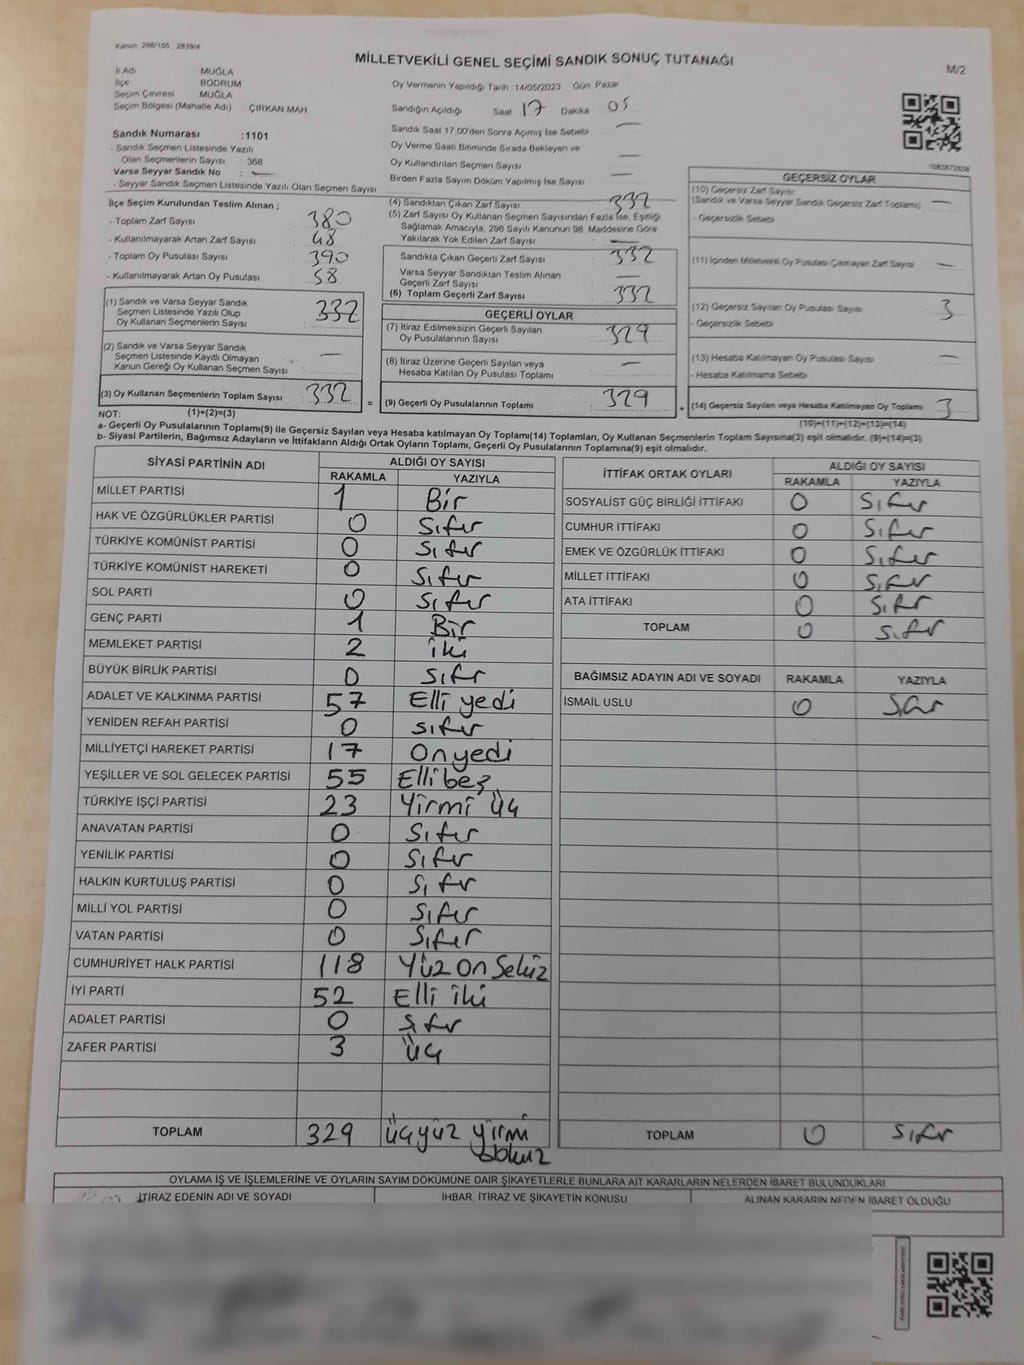 Kanun: 298/105 , 2839/4
MİLLETVEKİLİ GENEL SEÇİMİ SANDIK SONUÇ TUTANAĞI
M/2
İl Adı MUĞLA
İlçe BODRUM
Seçim Çevresi MUĞLA
Seçim Bölgesi (Mahalle Adı) ÇIRKAN MAH
Sandık Numarası :1101
- Sandık Seçmen Listesinde Yazılı
Olan Seçmenlerin Sayısı : 368
Varsa Seyyar Sandık No : —
- Seyyar Sandık Seçmen Listesinde Yazılı Olan Seçmen Sayısı
Oy Vermenin Yapıldığı Tarih :14/05/2023 Gün Pazar
Sandığın Açıldığı Saat 17 Dakika 05
Sandık Saat 17.00'den Sonra Açılmış İse Sebebi —
Oy Verme Saati Bitiminde Sırada Bekleyen ve
Oy Kullandırılan Seçmen Sayısı —
Birden Fazla Sayım Döküm Yapılmış İse Sayısı —
İlçe Seçim Kurulundan Teslim Alınan ;
- Toplam Zarf Sayısı : 380
- Kullanılmayarak Artan Zarf Sayısı : 48
- Toplam Oy Pusulası Sayısı : 390
- Kullanılmayarak Artan Oy Pusulası : 58
(1) Sandık ve Varsa Seyyar Sandık
Seçmen Listesinde Yazılı Olup
Oy Kullanan Seçmenlerin Sayısı : 332
(2) Sandık ve Varsa Seyyar Sandık
Seçmen Listesinde Kayıtlı Olmayan
Kanun Gereği Oy Kullanan Seçmen Sayısı : —
(3) Oy Kullanan Seçmenlerin Toplam Sayısı : 332
NOT: (1)+(2)=(3)
(4) Sandıktan Çıkan Zarf Sayısı : 332
(5) Zarf Sayısı Oy Kullanan Seçmen Sayısından Fazla İse, Eşitliği
Sağlamak Amacıyla, 298 Sayılı Kanunun 98. Maddesine Göre
Yakılarak Yok Edilen Zarf Sayısı : —
Sandıkta Çıkan Geçerli Zarf Sayısı : 332
Varsa Seyyar Sandıktan Teslim Alınan
Geçerli Zarf Sayısı : —
(6) Toplam Geçerli Zarf Sayısı : 332
GEÇERLİ OYLAR
(7) İtiraz Edilmeksizin Geçerli Sayılan
Oy Pusulalarının Sayısı : 329
(8) İtiraz Üzerine Geçerli Sayılan veya
Hesaba Katılan Oy Pusulası Toplamı : —
= (9) Geçerli Oy Pusulalarının Toplamı : 329
GEÇERSİZ OYLAR
(10) Geçersiz Zarf Sayısı
(Sandık ve Varsa Seyyar Sandık Geçersiz Zarf Toplamı) : —
- Geçersizlik Sebebi
(11) İçinden Milletvekili Oy Pusulası Çıkmayan Zarf Sayısı : —
(12) Geçersiz Sayılan Oy Pusulası Sayısı : 3
- Geçersizlik Sebebi
(13) Hesaba Katılmayan Oy Pusulası Sayısı : —
- Hesaba Katılmama Sebebi
+ (14) Geçersiz Sayılan veya Hesaba Katılmayan Oy Toplamı : 3
(10)+(11)+(12)+(13)=(14)
a- Geçerli Oy Pusulalarının Toplamı(9) ile Geçersiz Sayılan veya Hesaba katılmayan Oy Toplamı(14) Toplamları, Oy Kullanan Seçmenlerin Toplam Sayısına(3) eşit olmalıdır. (9)+(14)=(3)
b- Siyasi Partilerin, Bağımsız Adayların ve İttifakların Aldığı Ortak Oyların Toplamı, Geçerli Oy Pusulalarının Toplamına(9) eşit olmalıdır.
SİYASİ PARTİNİN ADI ALDIĞI OY SAYISI
RAKAMLA YAZIYLA
MİLLET PARTİSİ 1 Bir
HAK VE ÖZGÜRLÜKLER PARTİSİ 0 Sıfır
TÜRKİYE KOMÜNİST PARTİSİ 0 Sıfır
TÜRKİYE KOMÜNİST HAREKETİ 0 Sıfır
SOL PARTİ 0 Sıfır
GENÇ PARTİ 1 Bir
MEMLEKET PARTİSİ 2 iki
BÜYÜK BİRLİK PARTİSİ 0 Sıfır
ADALET VE KALKINMA PARTİSİ 57 Elli yedi
YENİDEN REFAH PARTİSİ 0 Sıfır
MİLLİYETÇİ HAREKET PARTİSİ 17 Onyedi
YEŞİLLER VE SOL GELECEK PARTİSİ 55 Ellibeş
TÜRKİYE İŞÇİ PARTİSİ 23 Yirmi üç
ANAVATAN PARTİSİ 0 Sıfır
YENİLİK PARTİSİ 0 Sıfır
HALKIN KURTULUŞ PARTİSİ 0 Sıfır
MİLLİ YOL PARTİSİ 0 Sıfır
VATAN PARTİSİ 0 Sıfır
CUMHURİYET HALK PARTİSİ 118 Yüz On Sekiz
İYİ PARTİ 52 Elli iki
ADALET PARTİSİ 0 Sıfır
ZAFER PARTİSİ 3 üç
TOPLAM 329 üçyüz yirmi dokuz
İTTİFAK ORTAK OYLARI ALDIĞI OY SAYISI
RAKAMLA YAZIYLA
SOSYALİST GÜÇ BİRLİĞİ İTTİFAKI 0 Sıfır
CUMHUR İTTİFAKI 0 Sıfır
EMEK VE ÖZGÜRLÜK İTTİFAKI 0 Sıfır
MİLLET İTTİFAKI 0 Sıfır
ATA İTTİFAKI 0 Sıfır
TOPLAM 0 Sıfır
BAĞIMSIZ ADAYIN ADI VE SOYADI RAKAMLA YAZIYLA
İSMAİL USLU 0 Sıfır
TOPLAM 0 Sıfır
OYLAMA İŞ VE İŞLEMLERİNE VE OYLARIN SAYIM DÖKÜMÜNE DAİR ŞİKAYETLERLE BUNLARA AİT KARARLARIN NELERDEN İBARET BULUNDUKLARI
İTİRAZ EDENİN ADI VE SOYADI İHBAR, İTİRAZ VE ŞİKAYETİN KONUSU ALINAN KARARIN NEDEN İBARET OLDUĞU